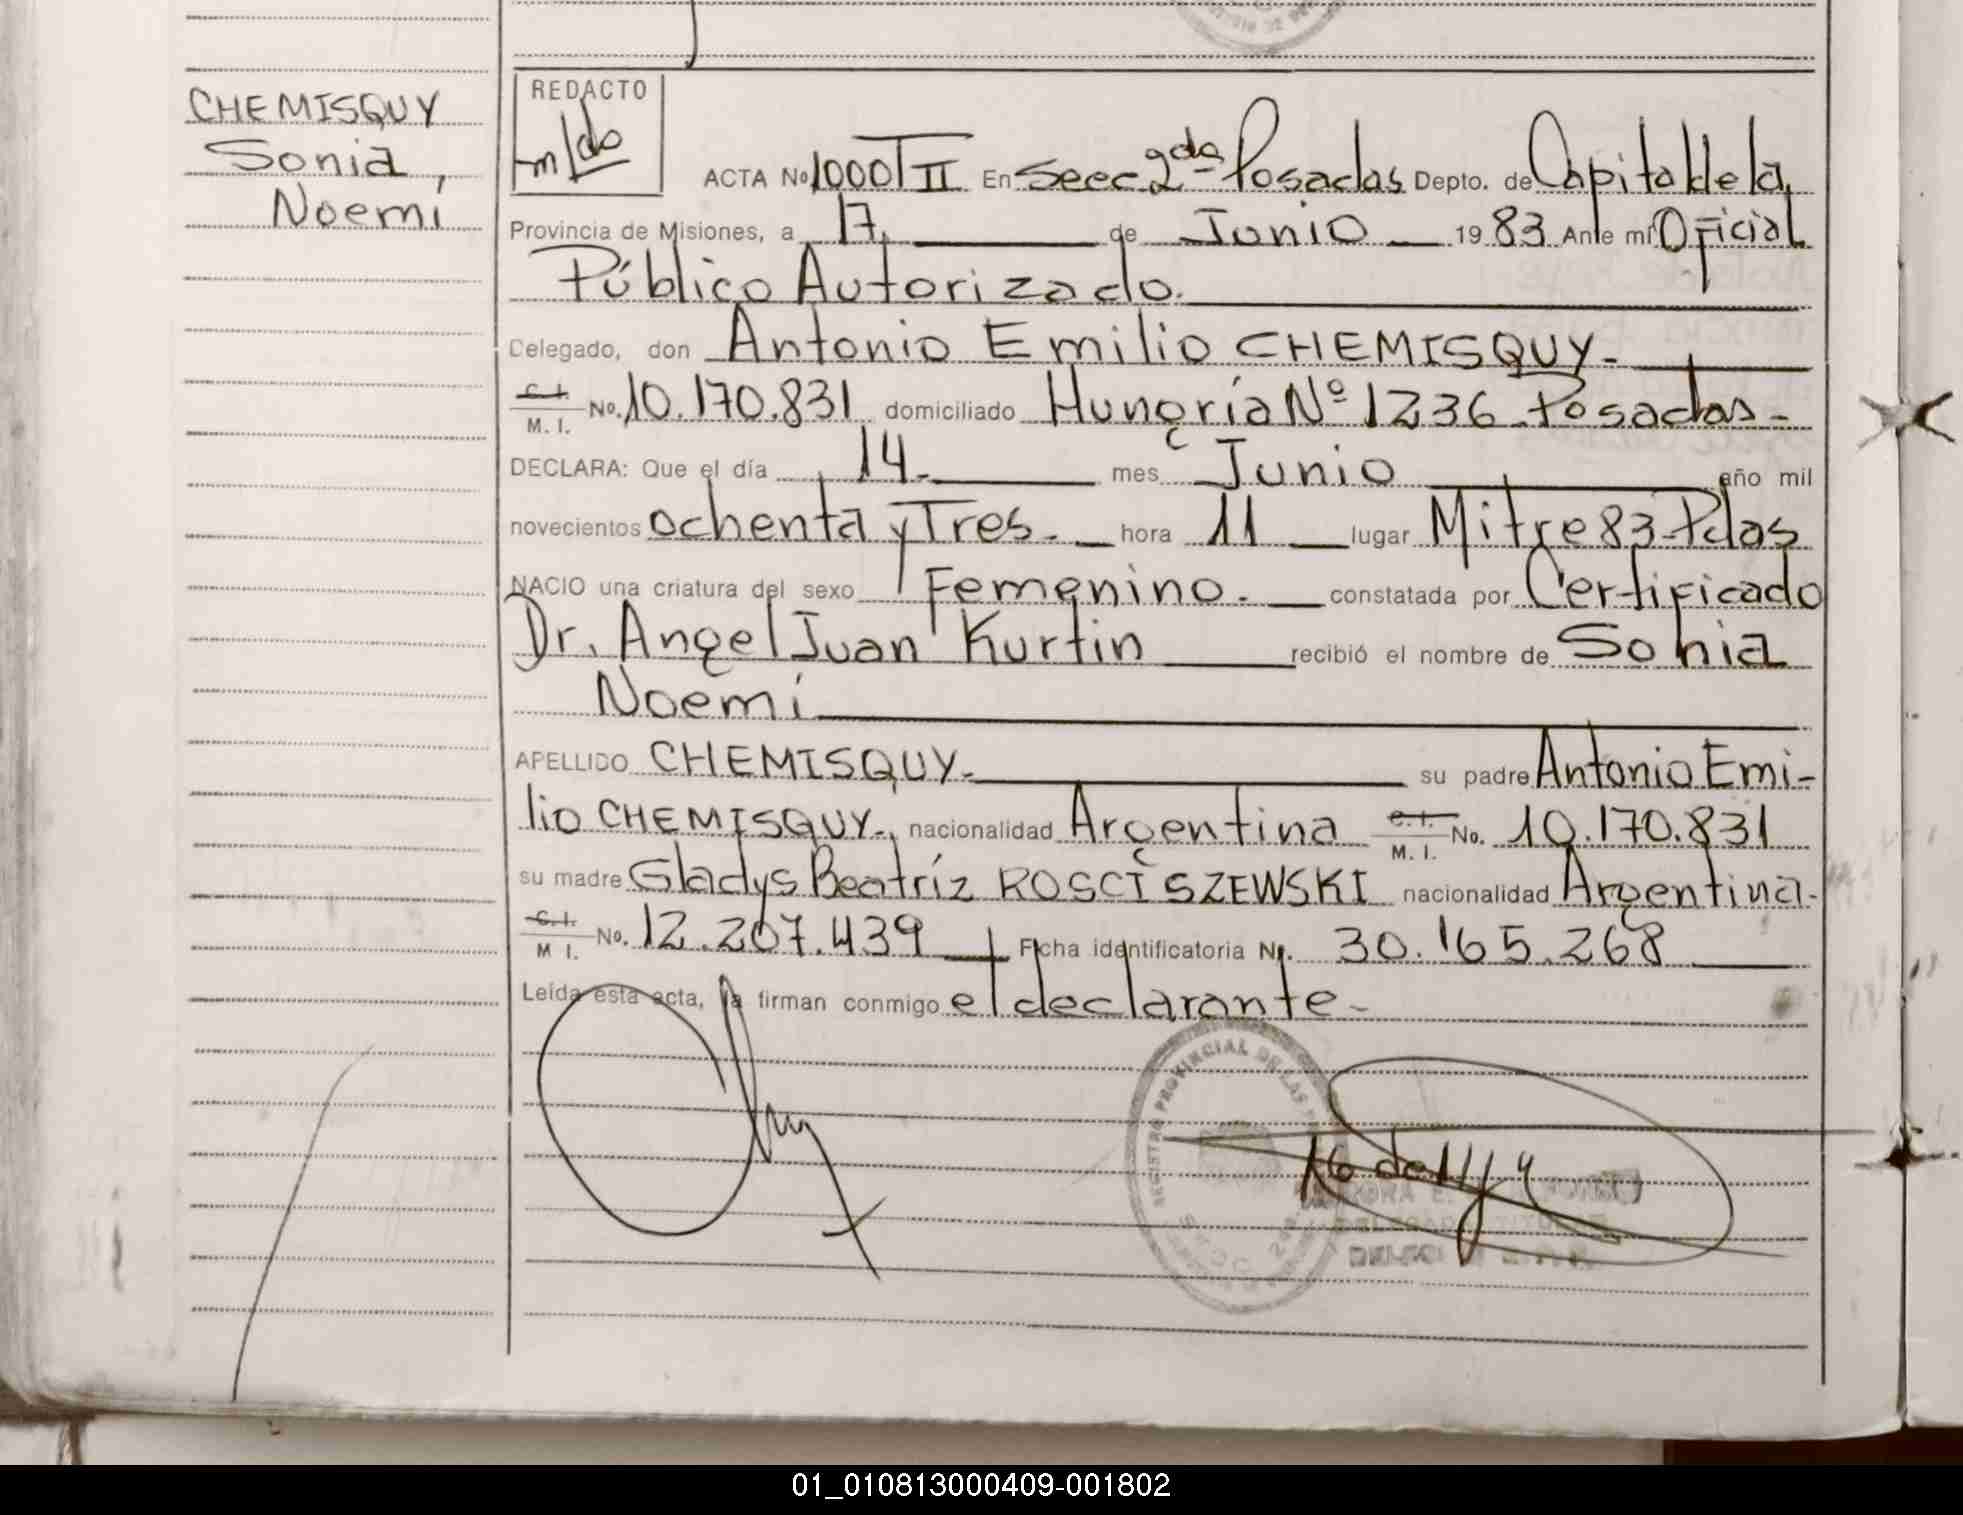 CHEMISQUY
Sonia,
Noemí
REDACTO
ACTA No 1000 T II En Secc 2da Posadas Depto. de Capital de la
Provincia de Misiones, a 17 de Junio 1983 Ante mí Oficial
Público Autorizado.
Delegado, don Antonio Emilio CHEMISQUY-
C. I.
M. I. No. 10.170.831 domiciliado Hungría Nº 1236 Posadas-
DECLARA: Que el día 14- mes Junio año mil
novecientos ochenta y Tres- hora 11 lugar Mitre 83-Pdas
NACIO una criatura del sexo Femenino. constatada por Certificado
Dr. Angel Juan Kurtin recibió el nombre de Sonia
Noemí
APELLIDO CHEMISQUY- su padre Antonio Emi-
lio CHEMISQUY-, nacionalidad Argentina C. I.
M. I. No. 10.170.831
su madre Gladys Beatríz ROSCISZEWSKI nacionalidad Argentina-
C. I.
M I. No. 12.207.439 Ficha identificatoria Nr. 30.165.268
Leída esta acta, la firman conmigo el declarante-
REGISTRO PROVINCIAL DE LAS
01_010813000409-001802